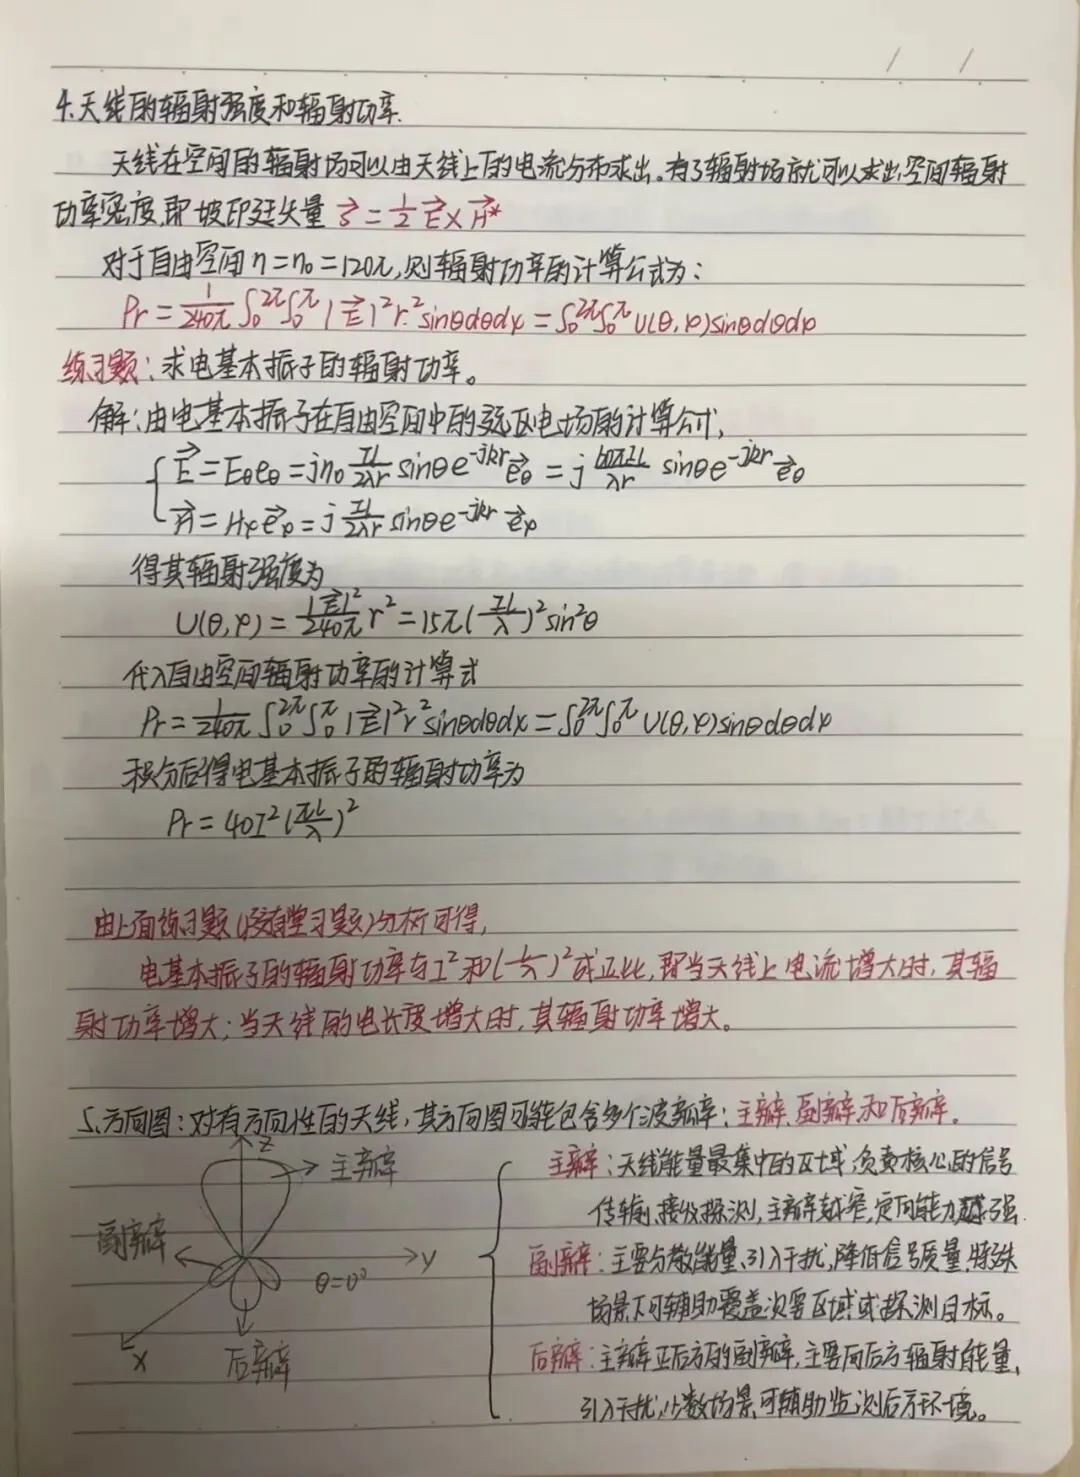 4.天线的辐射强度和辐射功率.
天线在空间的辐射场可以由天线上的电流分布求出。有了辐射场就可以求出空间辐射
功率密度,即坡印廷矢量 S⃗ = 1/2 E⃗ × H⃗*
对于自由空间 η = η₀ = 120π, 则辐射功率的计算公式为:
Pr = 1/240π ∫₀^2π ∫₀^π |E⃗|² r² sinθdθdφ = ∫₀^2π ∫₀^π U(θ,φ)sinθdθdφ
练习题: 求电基本振子的辐射功率。
解: 由电基本振子在自由空间中的远区电场的计算公式,
{ E⃗ = Eθeθ = jη₀ IL/2λr sinθe^-jkr e⃗θ = j 60πIL/λr sinθe^-jkr e⃗θ
H⃗ = Hφe⃗φ = j IL/2λr sinθe^-jkr e⃗φ
得其辐射强度为
U(θ,φ) = |E⃗|²/240π r² = 15π(IL/λ)² sin²θ
代入自由空间辐射功率的计算式
Pr = 1/240π ∫₀^2π ∫₀^π |E⃗|² r² sinθdθdφ = ∫₀^2π ∫₀^π U(θ,φ)sinθdθdφ
积分后得电基本振子的辐射功率为
Pr = 40I²(πL/λ)²
由上面练习题(没有学习题)分析可得,
电基本振子的辐射功率与I²和(L/λ)²成正比,即当天线上电流增大时,其辐
射功率增大;当天线的电长度增大时,其辐射功率增大。
5.方向图:对有方向性的天线,其方向图可能包含多个波瓣:主瓣、副瓣和后瓣。
z
主瓣
副瓣
y
θ=0°
x
后瓣
主瓣:天线能量最集中的区域,负责核心的信号
传输、接收探测,主瓣越窄,定向能力越强.
副瓣:主要分散能量、引入干扰,降低信号质量,特殊
场景下可辅助覆盖次要区域或探测目标。
后瓣:主瓣正后方的副瓣,主要向后方辐射能量,
引入干扰,少数场景可辅助监测后方环境。